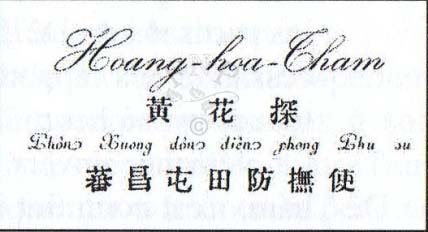 Hoang-hoa-Cham
黃花探
Phồn Xuong đồn điền phong Phu su
蕃昌屯田防撫使